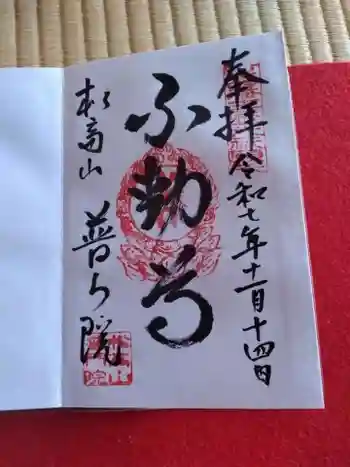 奉拝
令和七年十一月十四日
不動尊
松高山
普門院